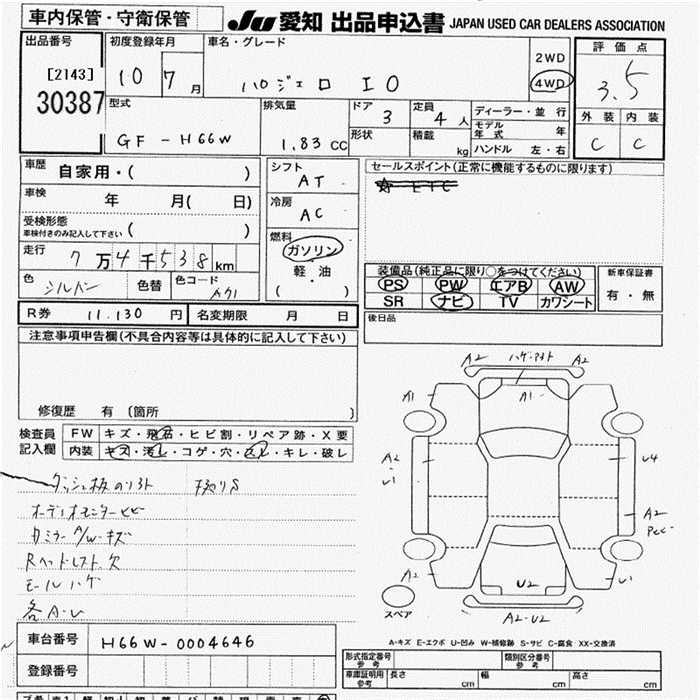 車内保管・守衛保管
JU 愛知 出品申込書 JAPAN USED CAR DEALERS ASSOCIATION
出品番号
[2143]
30387
初度登録年月
10 7月
車名・グレード
ハ゜ジェロ IO
2WD
4WD
評価点
3.5
外装 内装
C C
型式
GF-H66W
排気量
1.83 CC
ドア 3
形状
定員 4人
積載 kg
ディーラー・並行
モデル年式 年
ハンドル 左・右
車歴 自家用・( )
車検 年 月( 日)
受検形態
車検付きのみ記入して下さい ( )
走行 7万4千538km
色 シルバー 色替 色コード
シフト
AT
冷房
AC
燃料
ガソリン
軽・油
( ・ )
セールスポイント(正常に機能するものに限ります)
ETC
装備品(純正品に限り○をつけてください)
PS PW エアB AW
SR ナビ TV カワシート
新車保証書
有・無
R券 11.130円 名変期限 月 日
後日品
注意事項申告欄(不具合内容等は具体的に記入して下さい)
修復歴 有 〔箇所 〕
検査員記入欄
FW キズ・飛石・ヒビ割・リペア跡・X要
内装 キズ・汚レ・コゲ・穴・スレ・キレ・破レ
ダッシュ板のリフト
オーディオモニターヒビ
カミラーA/W-キズ
Rヘッドレスト欠
モールハゲ
各A-U
A2 A2
A1 A1
A2・U1
U4
A2
A2 U2 U1
A2-U2
スペア
A-キズ E-エクボ U-凹み W-補修跡 S-サビ C-腐食 XX-交換済
車台番号 H66W-0004646
登録番号
形式指定番号 参考
類別区分番号 参考
車庫証明用 参考 長さ cm 幅 cm 高さ cm